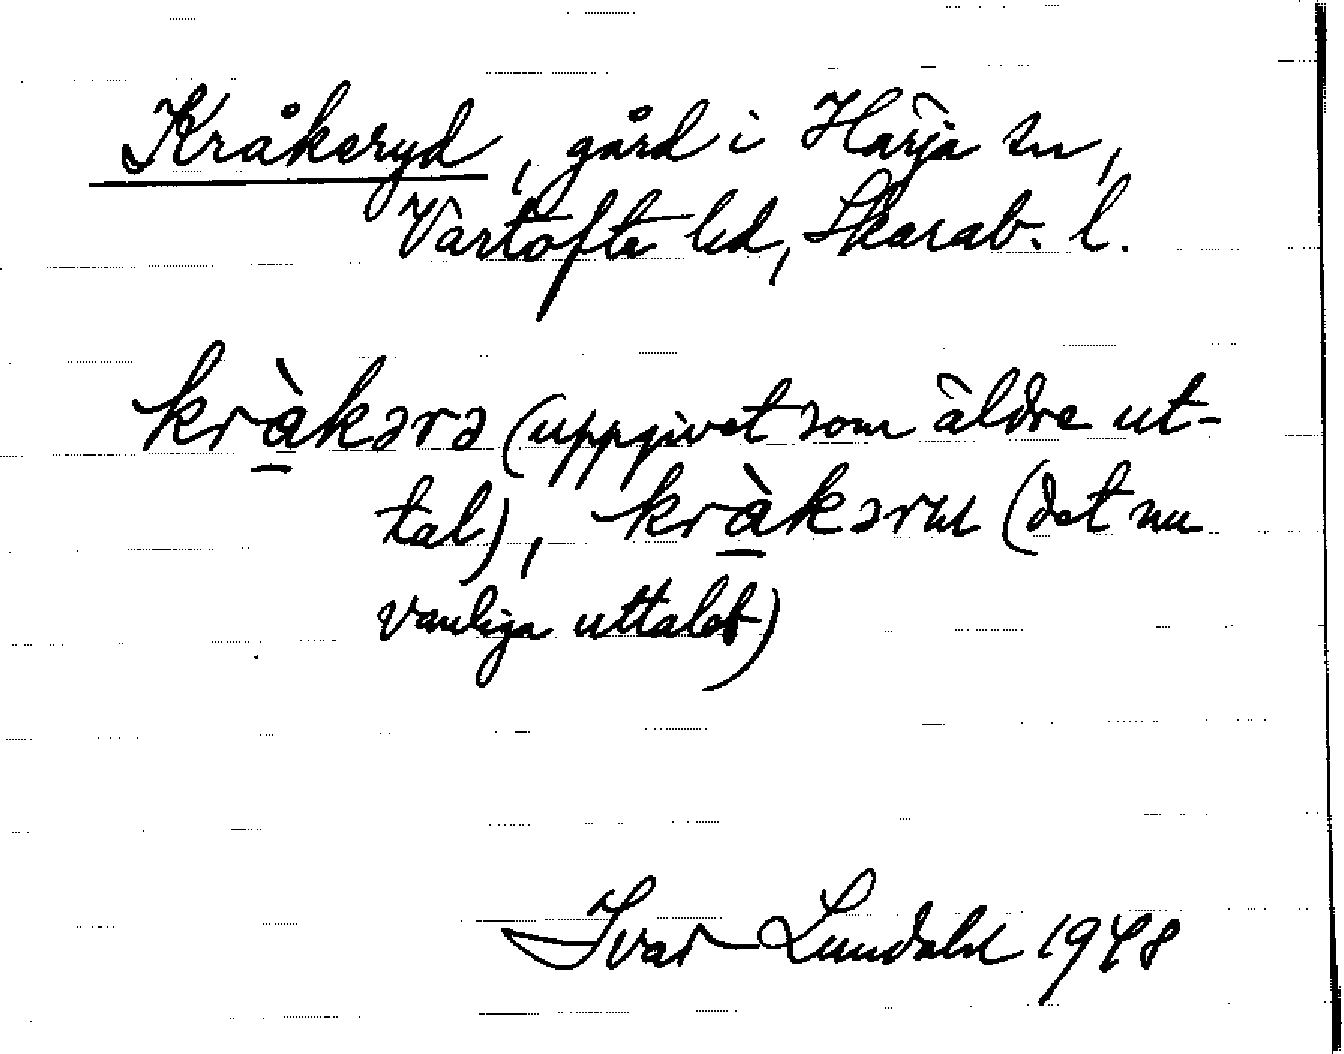 Kråkeryd, gård i Härja sn,
Vartofte hd, Skarab. l.
krà̱kərə (uppgivet som äldre ut-
tal), krà̱kərɯ (det nu
vanliga uttalet)
Ivar Lundahl 1948